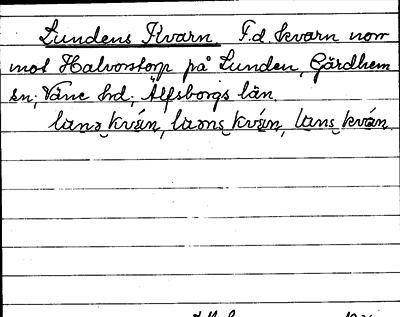 Lundens Kvarn. F.d. kvarn norr
mot Halvorstorp på Lunden, Gärdhem
sn; Väne hd; Älfsborgs län.
kván, kván, kván